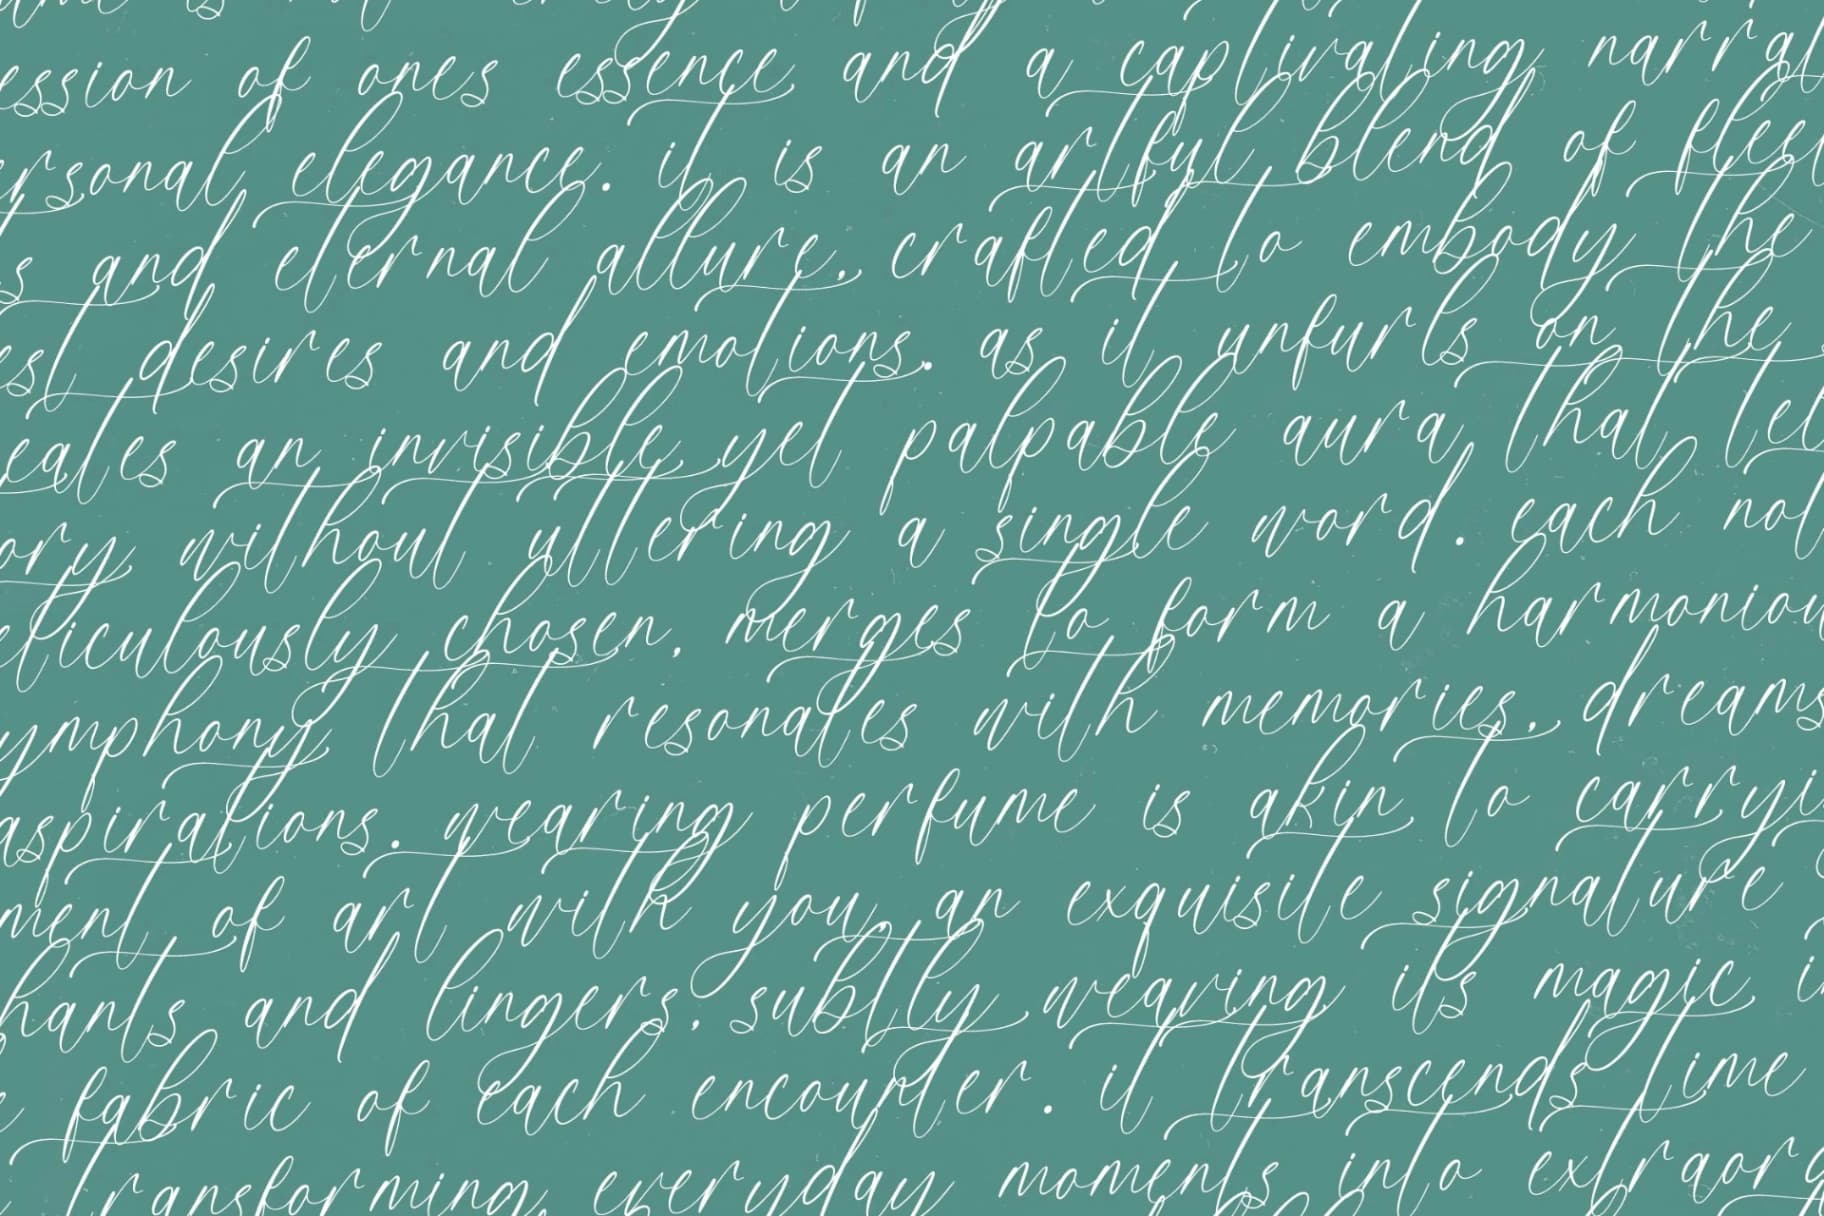 ession of ones essence and a captivating narrat
ersonal elegance. it is an artful blend of fleet
s and eternal allure, crafted to embody the
est desires and emotions. as it unfurls on the s
eates an invisible yet palpable aura that tel
ory without uttering a single word. each not
eticulously chosen, merges to form a harmoniou
ymphony that resonates with memories, dreams
aspirations. wearing perfume is akin to carryi
ment of art with you, an exquisite signature
hants and lingers, subtly wearing its magic i
e fabric of each encounter. it transcends time
transforming everyday moments into extraord